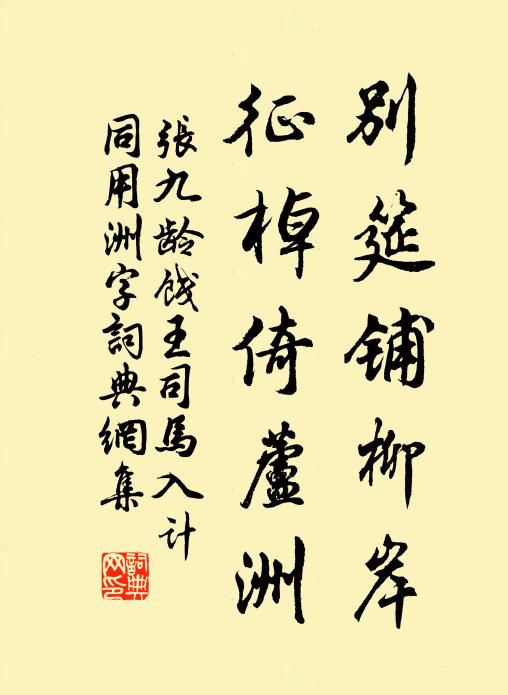 别筵铺柳岸
征棹倚蘆洲
張九龄饯王司馬入计
同用洲字詞典網集
詞典網印